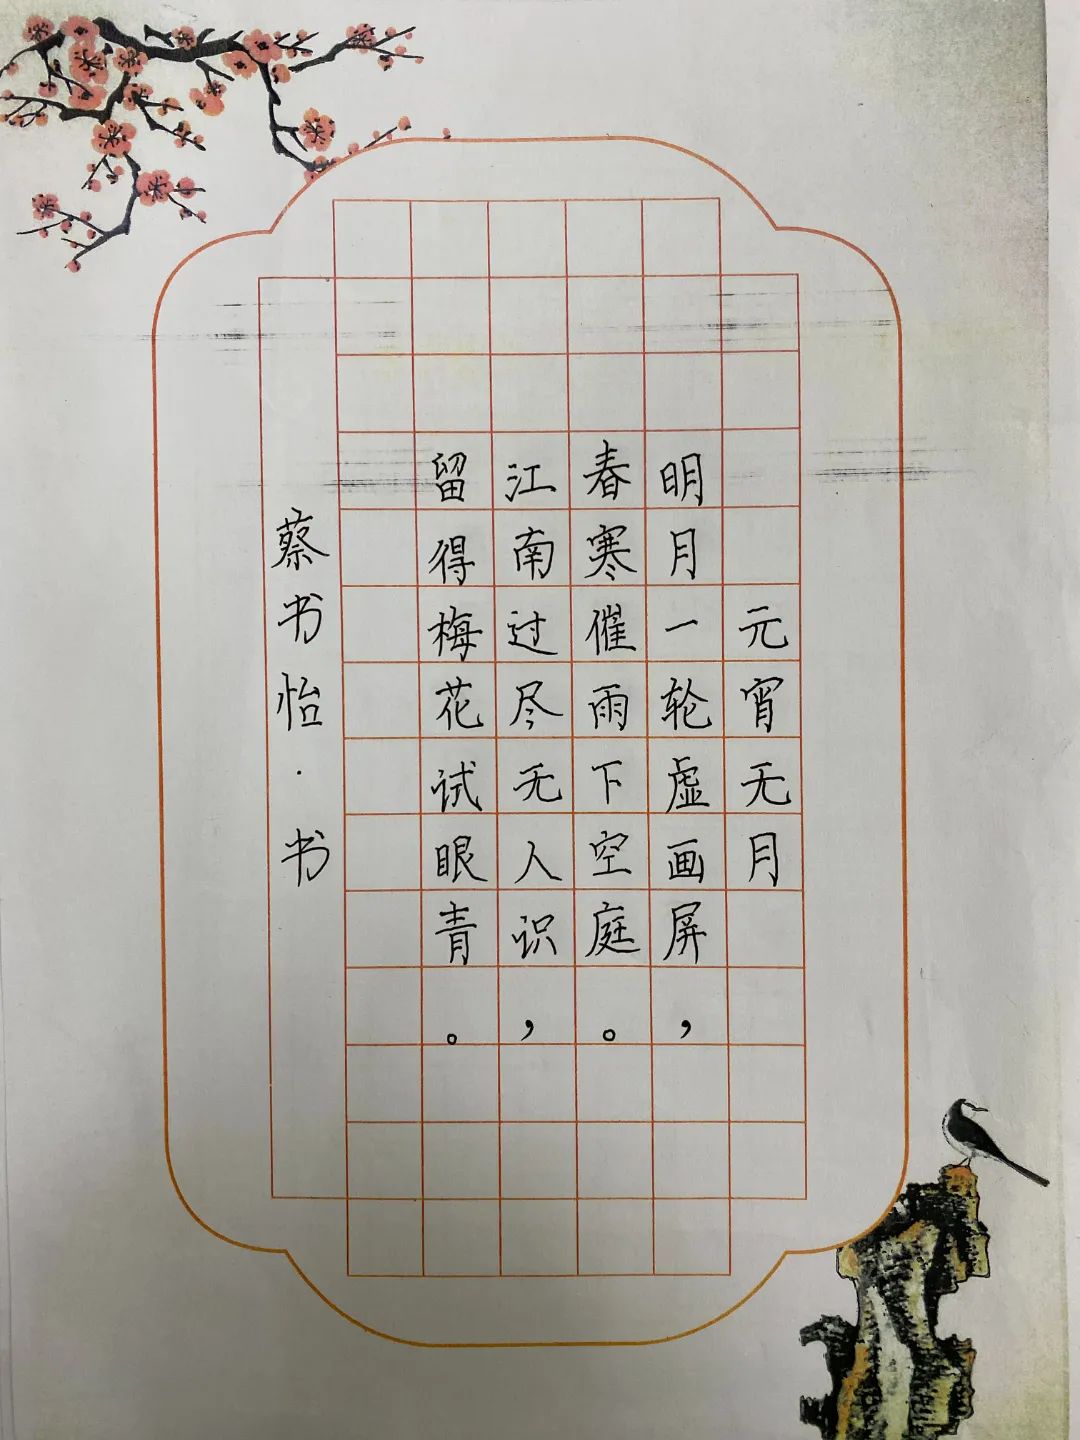 元宵无月
明月一轮虚画屏，
春寒催雨下空庭。
江南过尽无人识，
留得梅花试眼青。
蔡书怡·书